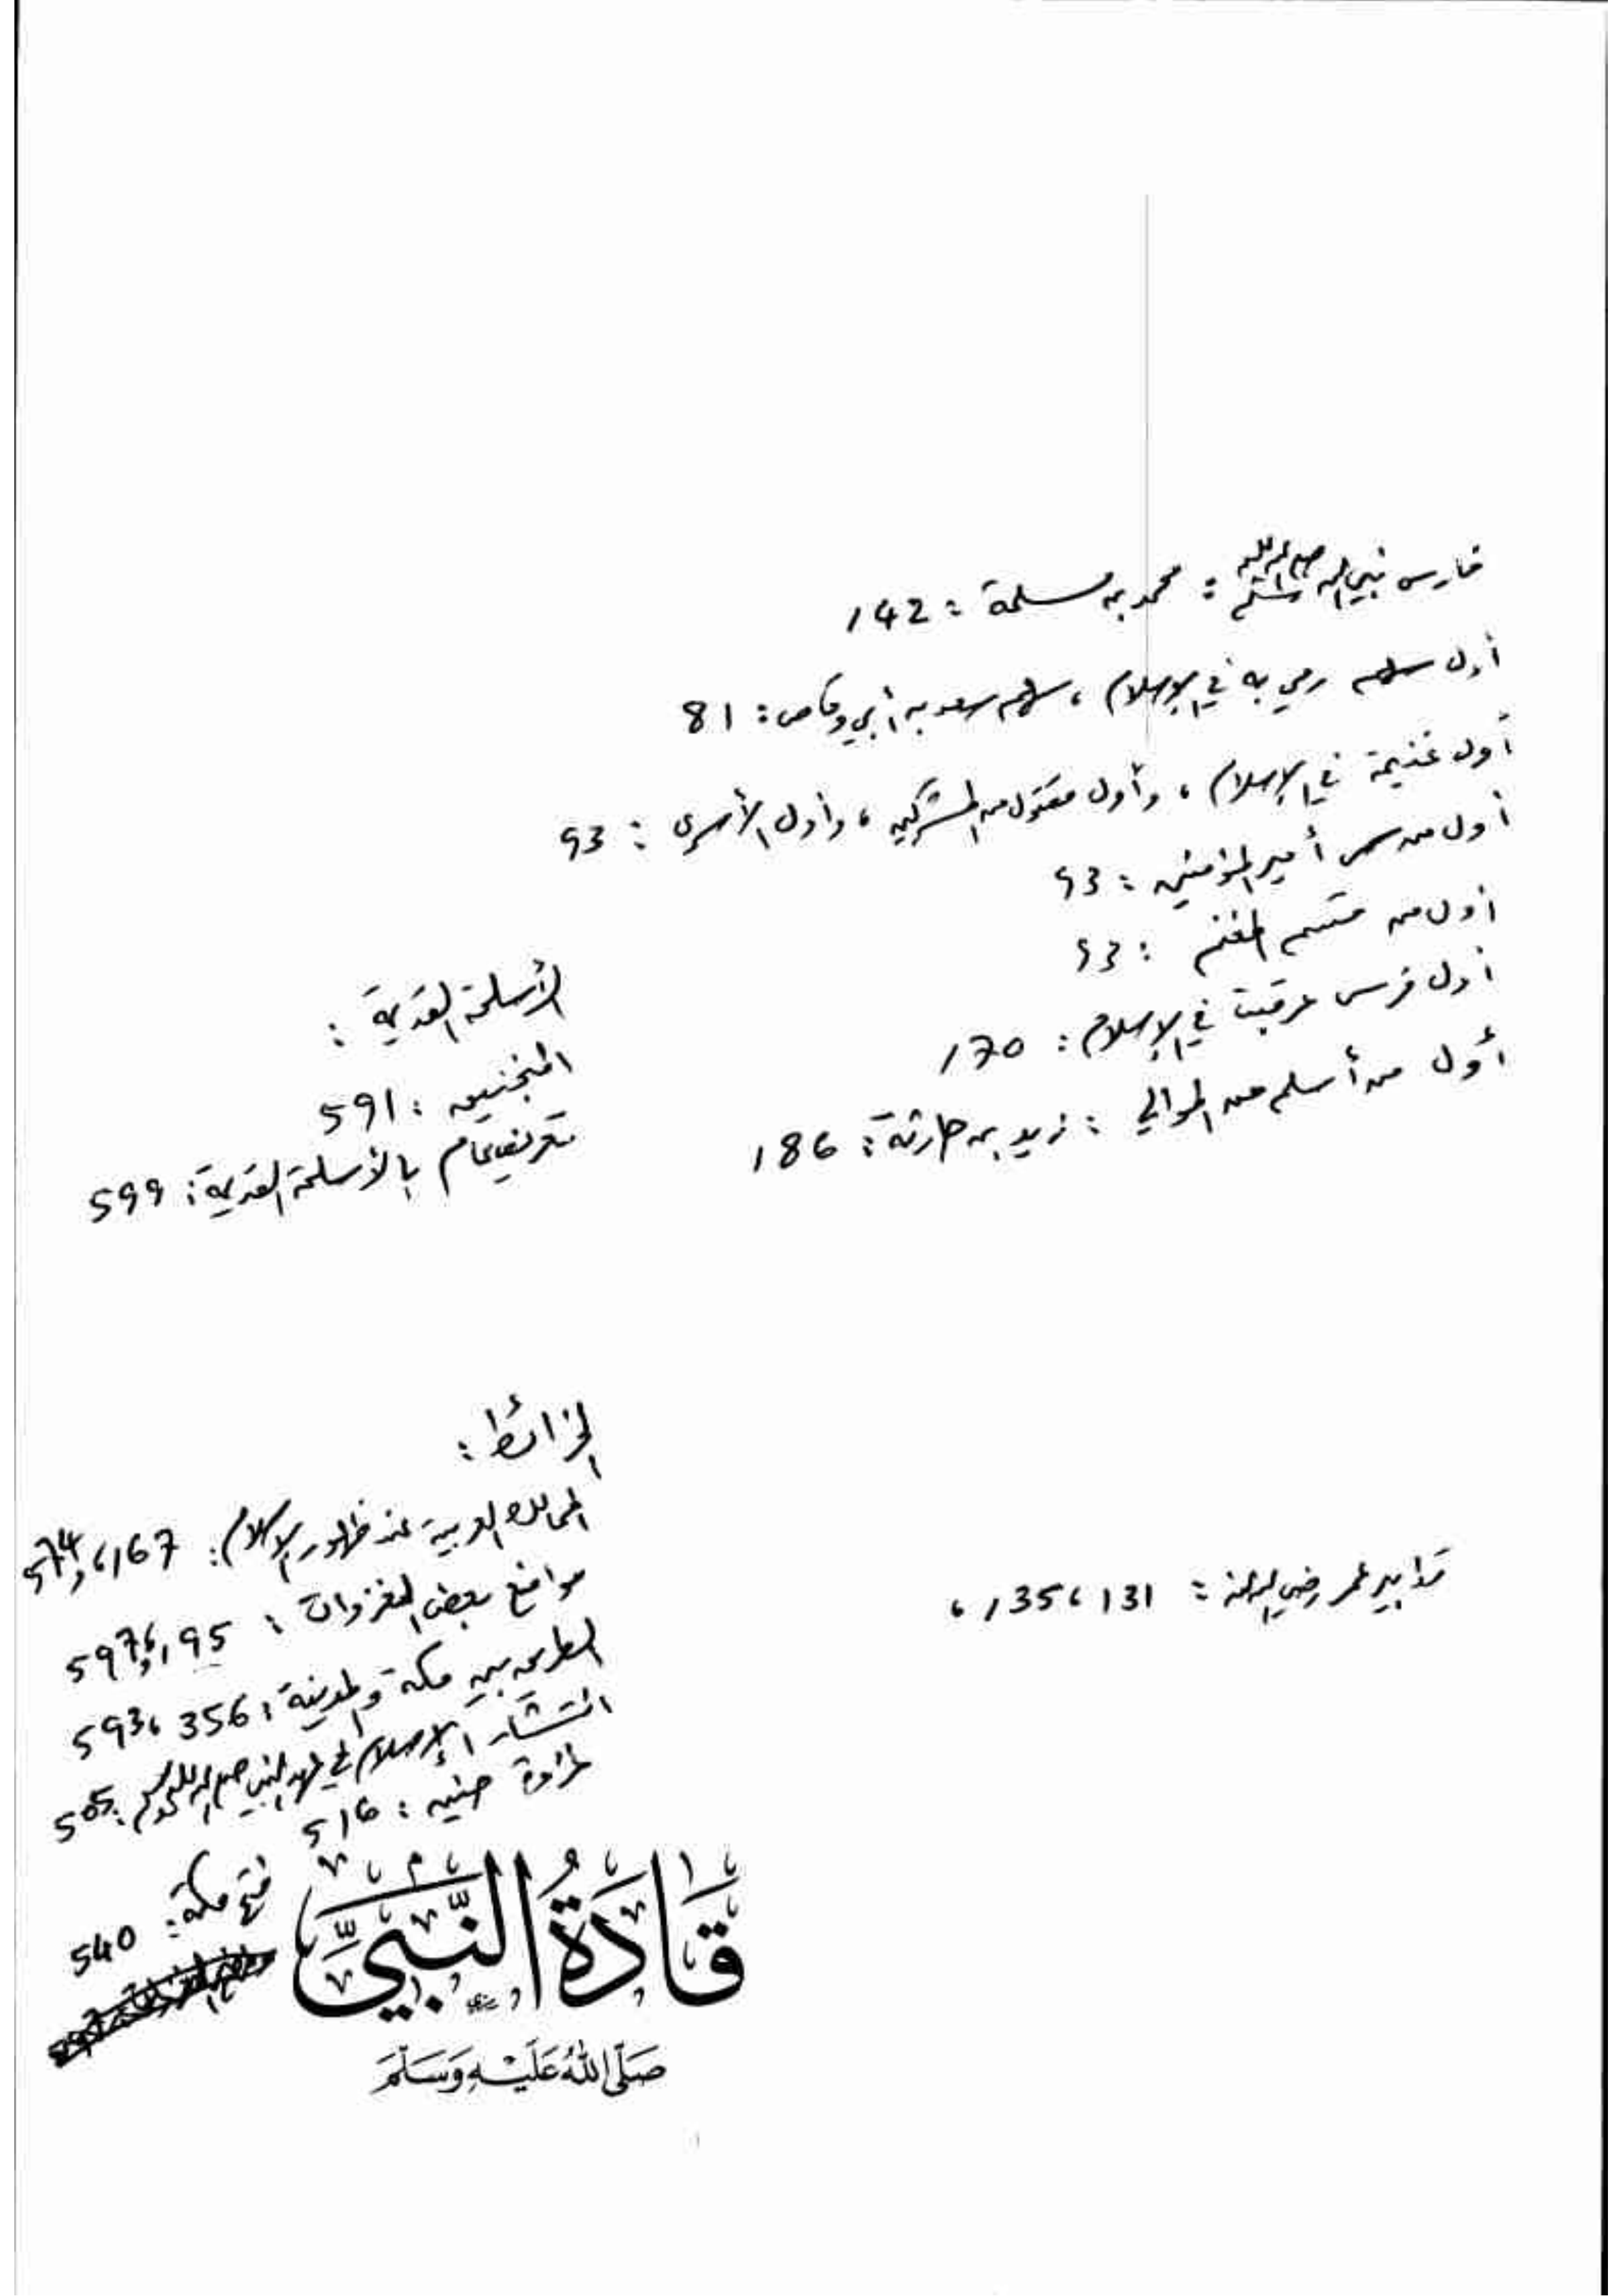 فارس نبي الله صلى الله عليه وسلم : محمد بن مسلمة : 142
أول سهم رمي به في الإسلام ، سهم سعد بن أبي وقاص : 81
أول غنيمة في الإسلام ، وأول مقتول من المشركين ، وأول الأسرى : 93
أول من سمي أمير المؤمنين : 93
أول من قسم المغنم : 93
أول فرس عرقبت في الإسلام : 170
أول من أسلم من الموالي : زيد بن حارثة : 186
الأسلحة القديمة :
المنجنيق : 591
تعريف عام بالأسلحة القديمة : 599
تدابير عمر رضي الله عنه : 131 ، 135 ،
الخرائط :
الممالك العربية عند ظهور الإسلام : 167 ، و574
مواقع بعض الغزوات : 195 ، و597
الطريق بين مكة والمدينة : 356 ، 593
انتشار الإسلام في عهد النبي صلى الله عليه وسلم : 505
غزوة حنين : 516
فتح مكة : 540
قَادَةُ النَّبِيِّ
صَلَّى اللهُ عَلَيْهِ وَسَلَّمَ